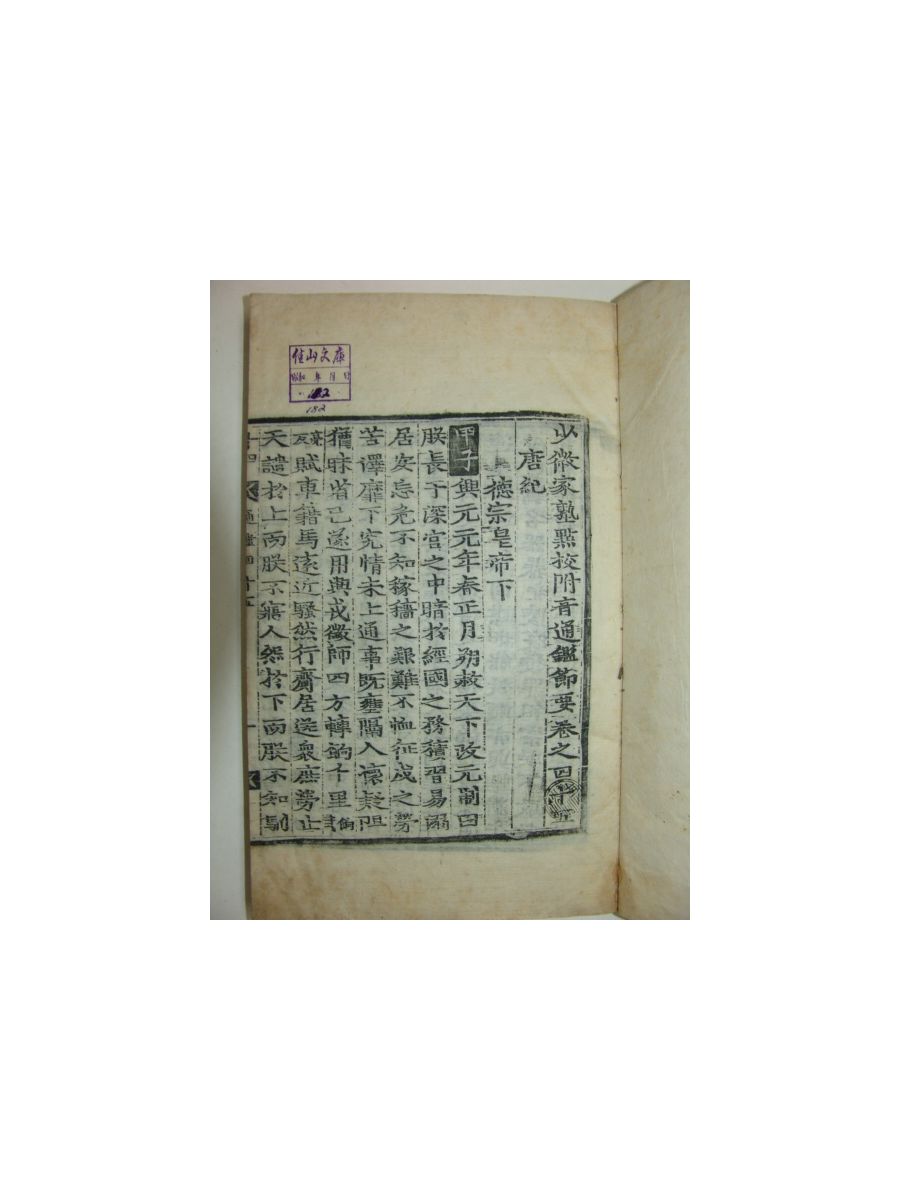 少微家塾點校附音通鑑節要卷之四十五
唐紀
德宗皇帝下
甲子興元元年春正月朔赦天下改元制曰
朕長于深宮之中暗於經國之務積習易溺
居安忘危不知稼穡之艱難不恤征戍之勞
苦澤靡下究情未上通事既壅隔人懷疑阻
猶昧省己遂用興戎徵師四方轉餉千里
賦車籍馬遠近騷然行齎居送衆庶勞止
天譴於上而朕不寤人怨於下而朕不知馴
佳山文庫
昭和 年 月 日
182
182